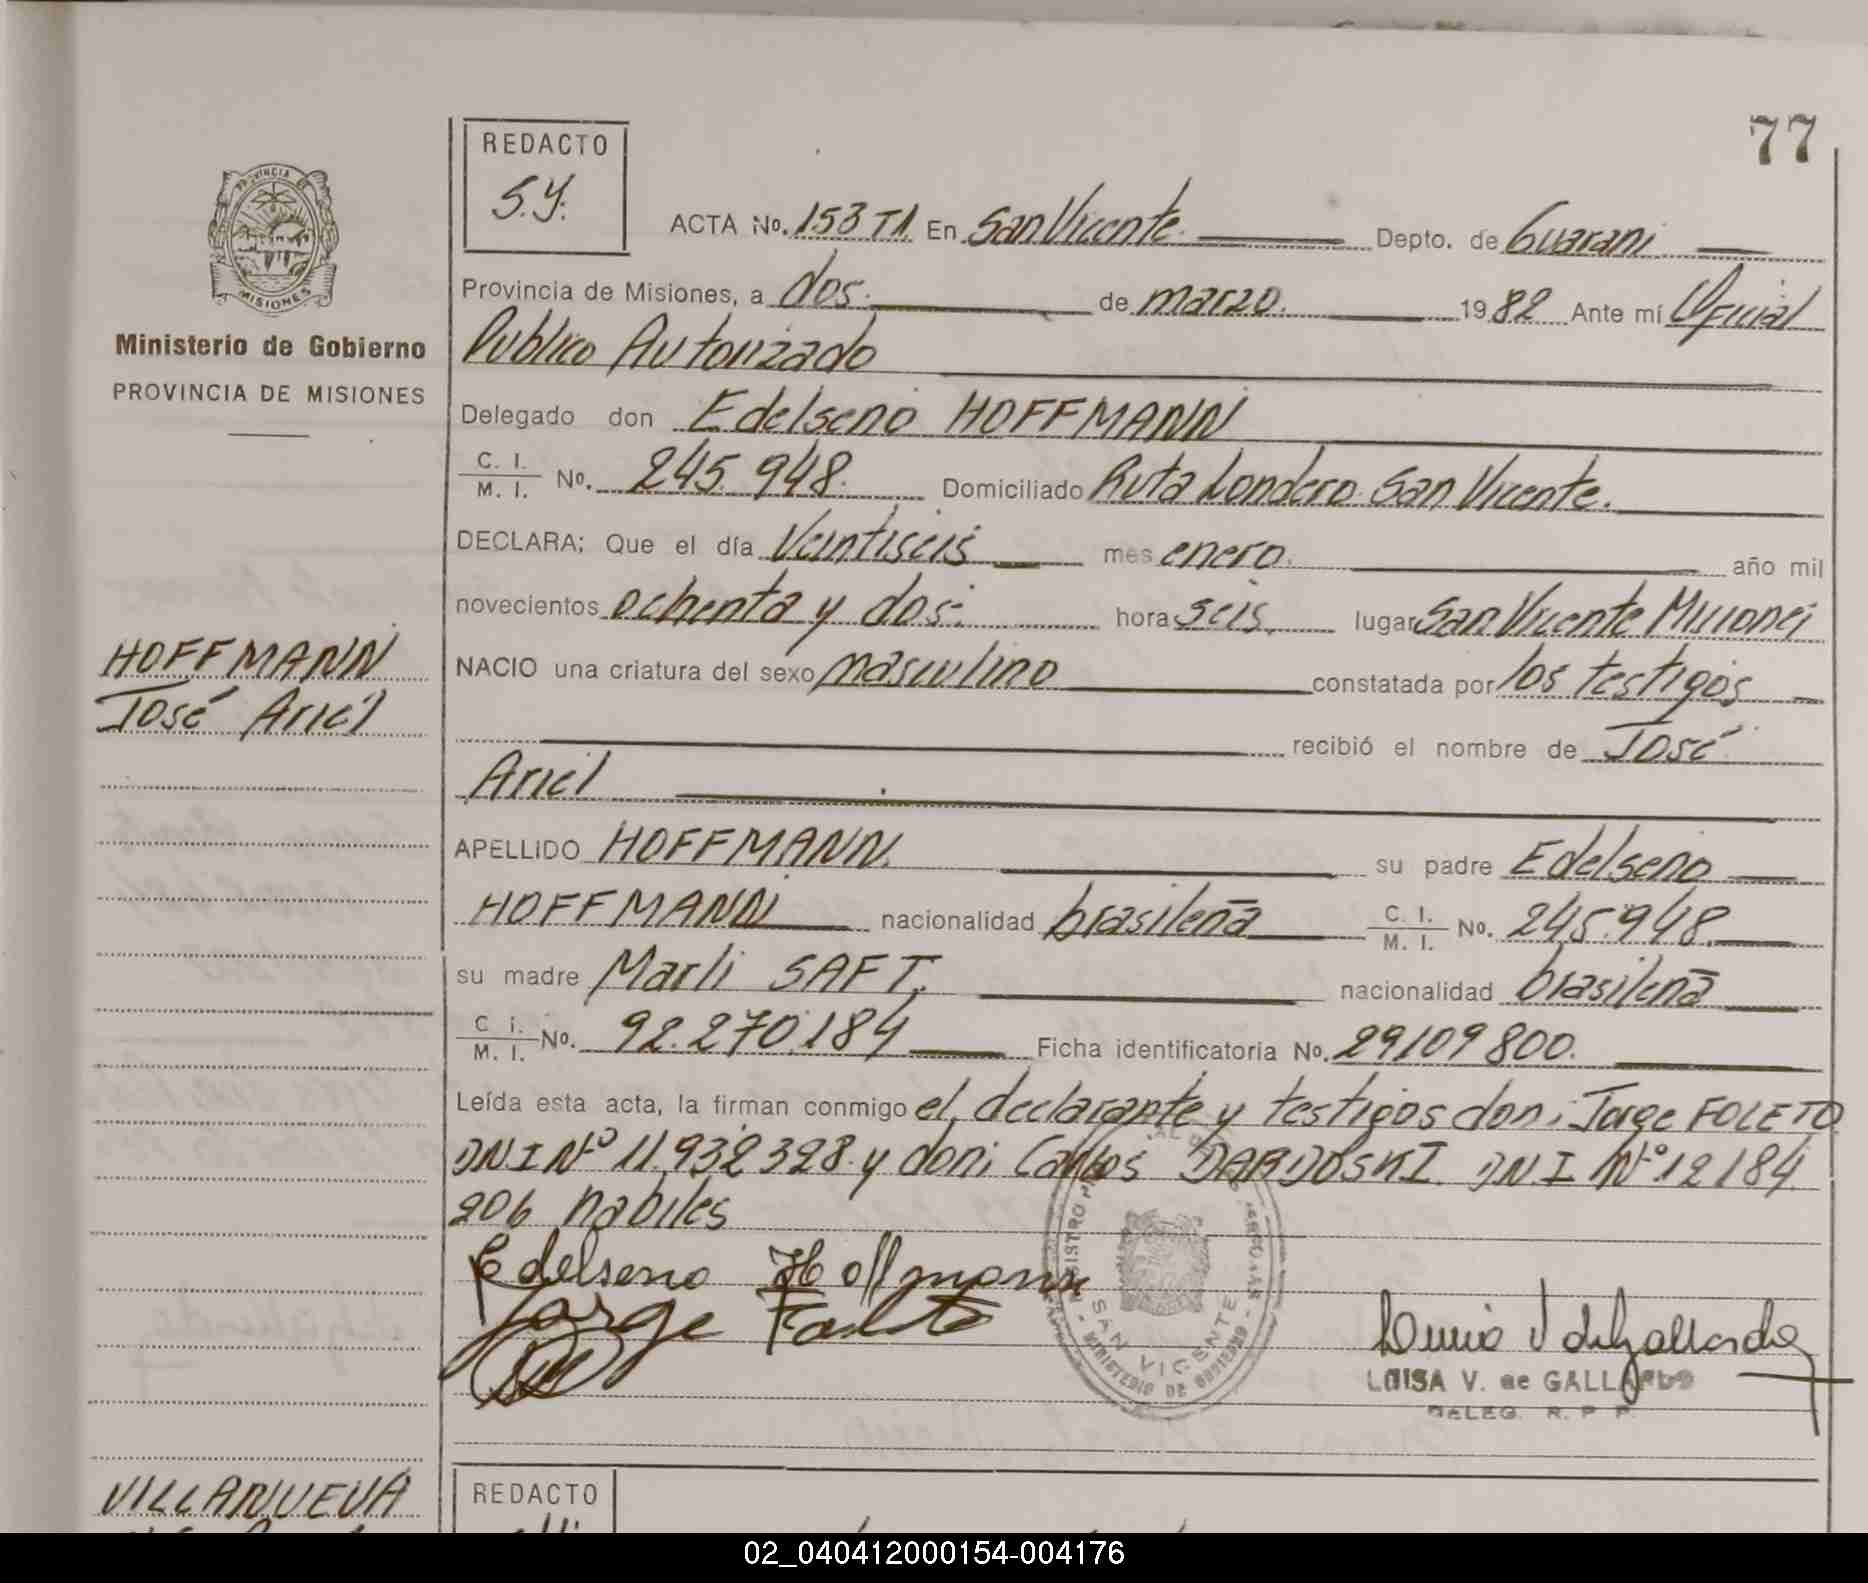 77
REDACTO
S.Y.
PROVINCIA DE
MISIONES
Ministerio de Gobierno
PROVINCIA DE MISIONES
ACTA No. 153 T1 En San Vicente. Depto. de Guarani
Provincia de Misiones, a dos. de marzo. 1982 Ante mí Oficial
Publico Autorizado
Delegado don Edelseno HOFFMANN
C. I. / M. I. No. 245.948. Domiciliado Ruta Londero. San Vicente.
DECLARA; Que el día Veintiseis mes enero. año mil
novecientos ochenta y dos. hora seis. lugar San Vicente Misiones
HOFFMANN
José Ariel
NACIO una criatura del sexo masculino constatada por los testigos
recibió el nombre de José
Ariel
APELLIDO HOFFMANN. su padre Edelseno
HOFFMANN nacionalidad brasileña C. I. / M. I. No. 245.948.
su madre Marli SAFT. nacionalidad brasileña
C. i. / M. I. No. 92.270.184 Ficha identificatoria No. 29109800.
Leída esta acta, la firman conmigo el declarante y testigos don: Jorge FOLETO
DNI Nº 11.932 328. y don; Carlos DARDOSKI. DNI Nº 12 184
206 habiles
Edelseno Hoffmann
Jorge Foleto
SAN VICENTE
MINISTERIO DE GOBIERNO
LUISA V. de GALLARDO
DELEG. R. P. P.
VILLANUEVA
REDACTO
02_040412000154-004176